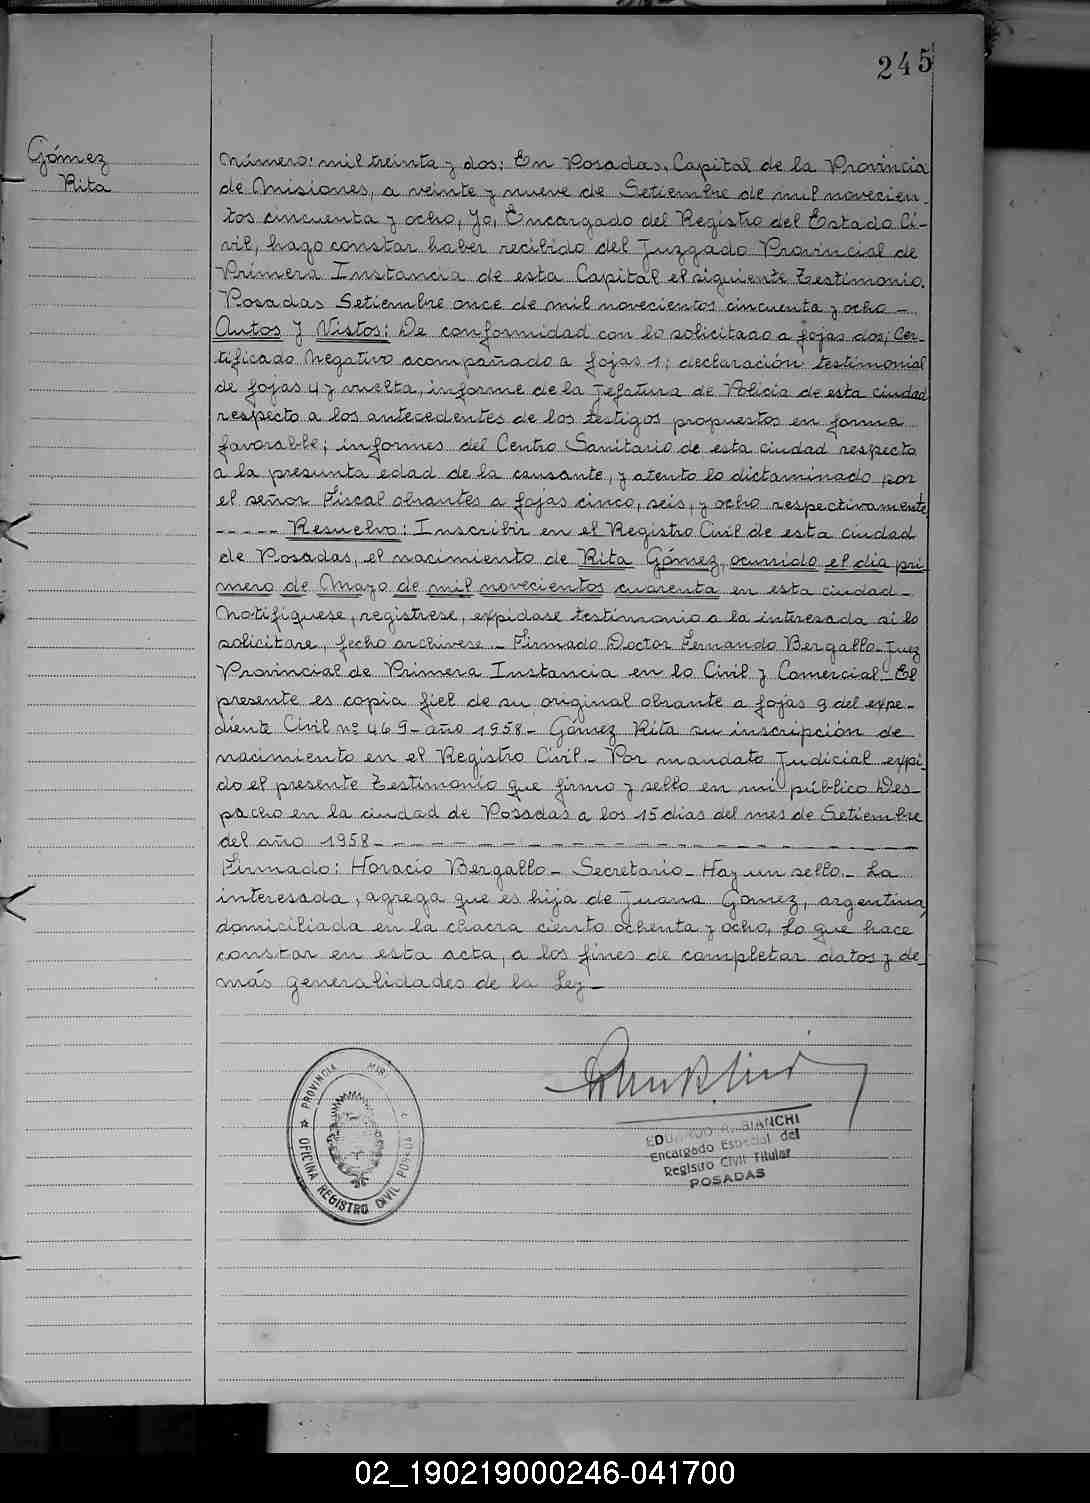 245
Gómez
Rita
Número: mil treinta y dos: En Posadas, Capital de la Provincia
de Misiones, a veinte y nueve de Setiembre de mil novecien-
tos cincuenta y ocho, Yo, Encargado del Registro del Estado Ci-
vil, hago constar haber recibido del Juzgado Provincial de
Primera Instancia de esta Capital el siguiente Testimonio.
Posadas Setiembre once de mil novecientos cincuenta y ocho –
Autos y Vistos: De conformidad con lo solicitado a fojas dos; Cer-
tificado Negativo acompañado a fojas 1; declaración testimonial
de fojas 4 y vuelta, informe de la Jefatura de Policía de esta ciudad
respecto a los antecedentes de los testigos propuestos en forma
favorable; informes del Centro Sanitario de esta ciudad respecto
a la presunta edad de la causante, y atento lo dictaminado por
el señor Fiscal obrantes a fojas cinco, seis, y ocho respectivamente
----- Resuelvo: Inscribir en el Registro Civil de esta ciudad
de Posadas, el nacimiento de Rita Gómez, ocurrido el día pri-
mero de Mayo de mil novecientos cuarenta en esta ciudad –
Notifíquese, regístrese, expídase testimonio a la interesada si lo
solicitare, fecho archívese – Firmado Doctor Fernando Bergallo – Juez
Provincial de Primera Instancia en lo Civil y Comercial – El
presente es copia fiel de su original obrante a fojas 9 del expe-
diente Civil nº 469 – año 1958 – Gómez Rita su inscripción de
nacimiento en el Registro Civil – Por mandato Judicial expi-
do el presente Testimonio que firmo y sello en mi público Des-
pacho en la ciudad de Posadas a los 15 días del mes de Setiembre
del año 1958 – – – – – – – – – – – – – – – – – – – –
Firmado: Horacio Bergallo – Secretario – Hay un sello. – La
interesada, agrega que es hija de Juana Gomez, argentina,
domiciliada en la chacra ciento ochenta y ocho, Lo que hace
constar en esta acta, a los fines de completar datos y de-
más generalidades de la Ley –
PROVINCIA
OFICINA REGISTRO CIVIL POSADAS
EDUARDO R. BIANCHI
Encargado Especial del
Registro Civil Titular
POSADAS
02_190219000246-041700